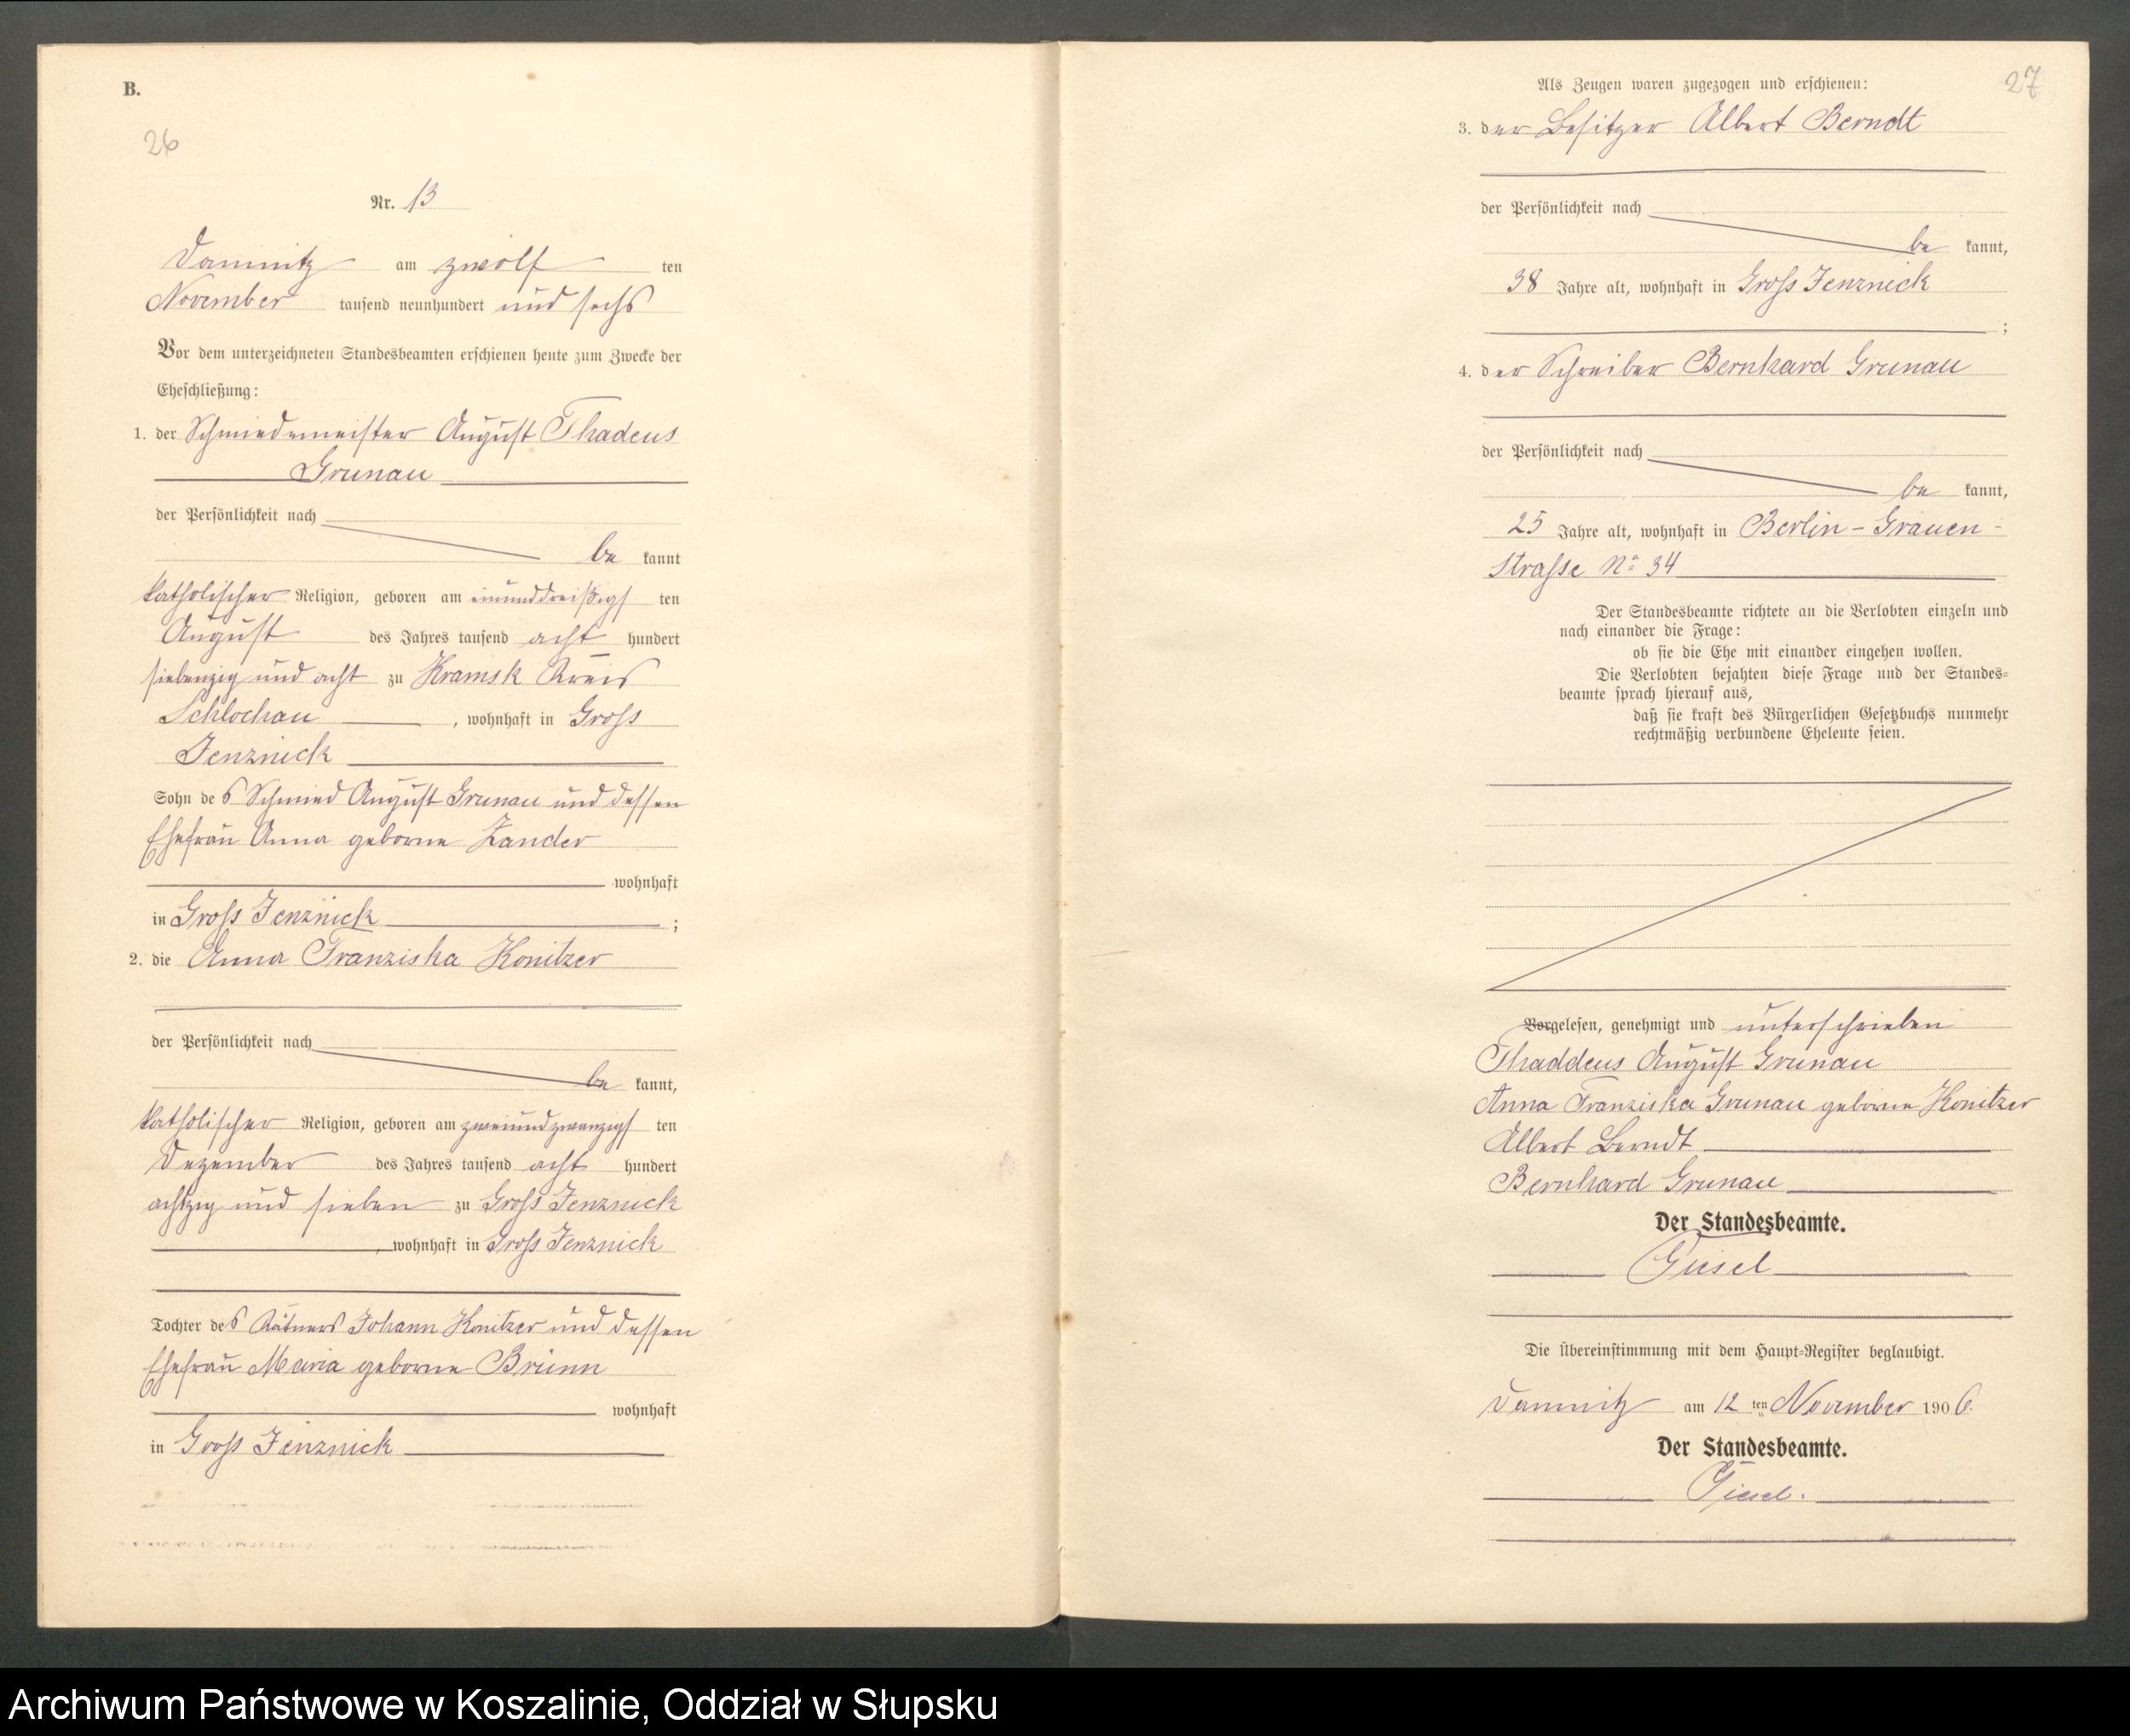 B.
26
Nr. 13
Damnitz am zwölf ten
November tausend neunhundert und sechs
Vor dem unterzeichneten Standesbeamten erschienen heute zum Zwecke der
Eheschließung:
1. der Schmiedemeister August Thadeus
Grunau
der Persönlichkeit nach
be kannt
katholischer Religion, geboren am einunddreißigs ten
August des Jahres tausend acht hundert
siebenzig und acht zu Kramsk Kreis
Schlochau , wohnhaft in Gross
Jenznick
Sohn des Schmied August Grunau und dessen
Ehefrau Anna geborne Zander
wohnhaft
in Gross Jenznick ;
2. die Anna Franziska Konitzer
der Persönlichkeit nach
be kannt,
katholischer Religion, geboren am zweiundzwanzigs ten
Dezember des Jahres tausend acht hundert
achtzig und sieben zu Gross Jenznick
, wohnhaft in Gross Jenznick
Tochter des Kätners Johann Konitzer und dessen
Ehefrau Maria geborne Brünn
wohnhaft
in Gross Jenznick
27
Als Zeugen waren zugezogen und erschienen:
3. der Besitzer Albert Berndt
der Persönlichkeit nach
be kannt,
38 Jahre alt, wohnhaft in Gross Jenznick
;
4. der Schreiber Bernhard Grunau
der Persönlichkeit nach
be kannt,
25 Jahre alt, wohnhaft in Berlin - Grauen -
Strasse No 34
Der Standesbeamte richtete an die Verlobten einzeln und
nach einander die Frage:
ob sie die Ehe mit einander eingehen wollen.
Die Verlobten bejahten diese Frage und der Standes-
beamte sprach hierauf aus,
daß sie kraft des Bürgerlichen Gesetzbuchs nunmehr
rechtmäßig verbundene Eheleute seien.
Vorgelesen, genehmigt und unterschrieben
Thaddeus August Grunau
Anna Franziska Grunau geborne Konitzer
Albert Berndt
Bernhard Grunau
Der Standesbeamte.
Giesel
Die Übereinstimmung mit dem Haupt-Register beglaubigt.
Damnitz am 12 ten November 1906.
Der Standesbeamte.
Giesel.
Archiwum Państwowe w Koszalinie, Oddział w Słupsku